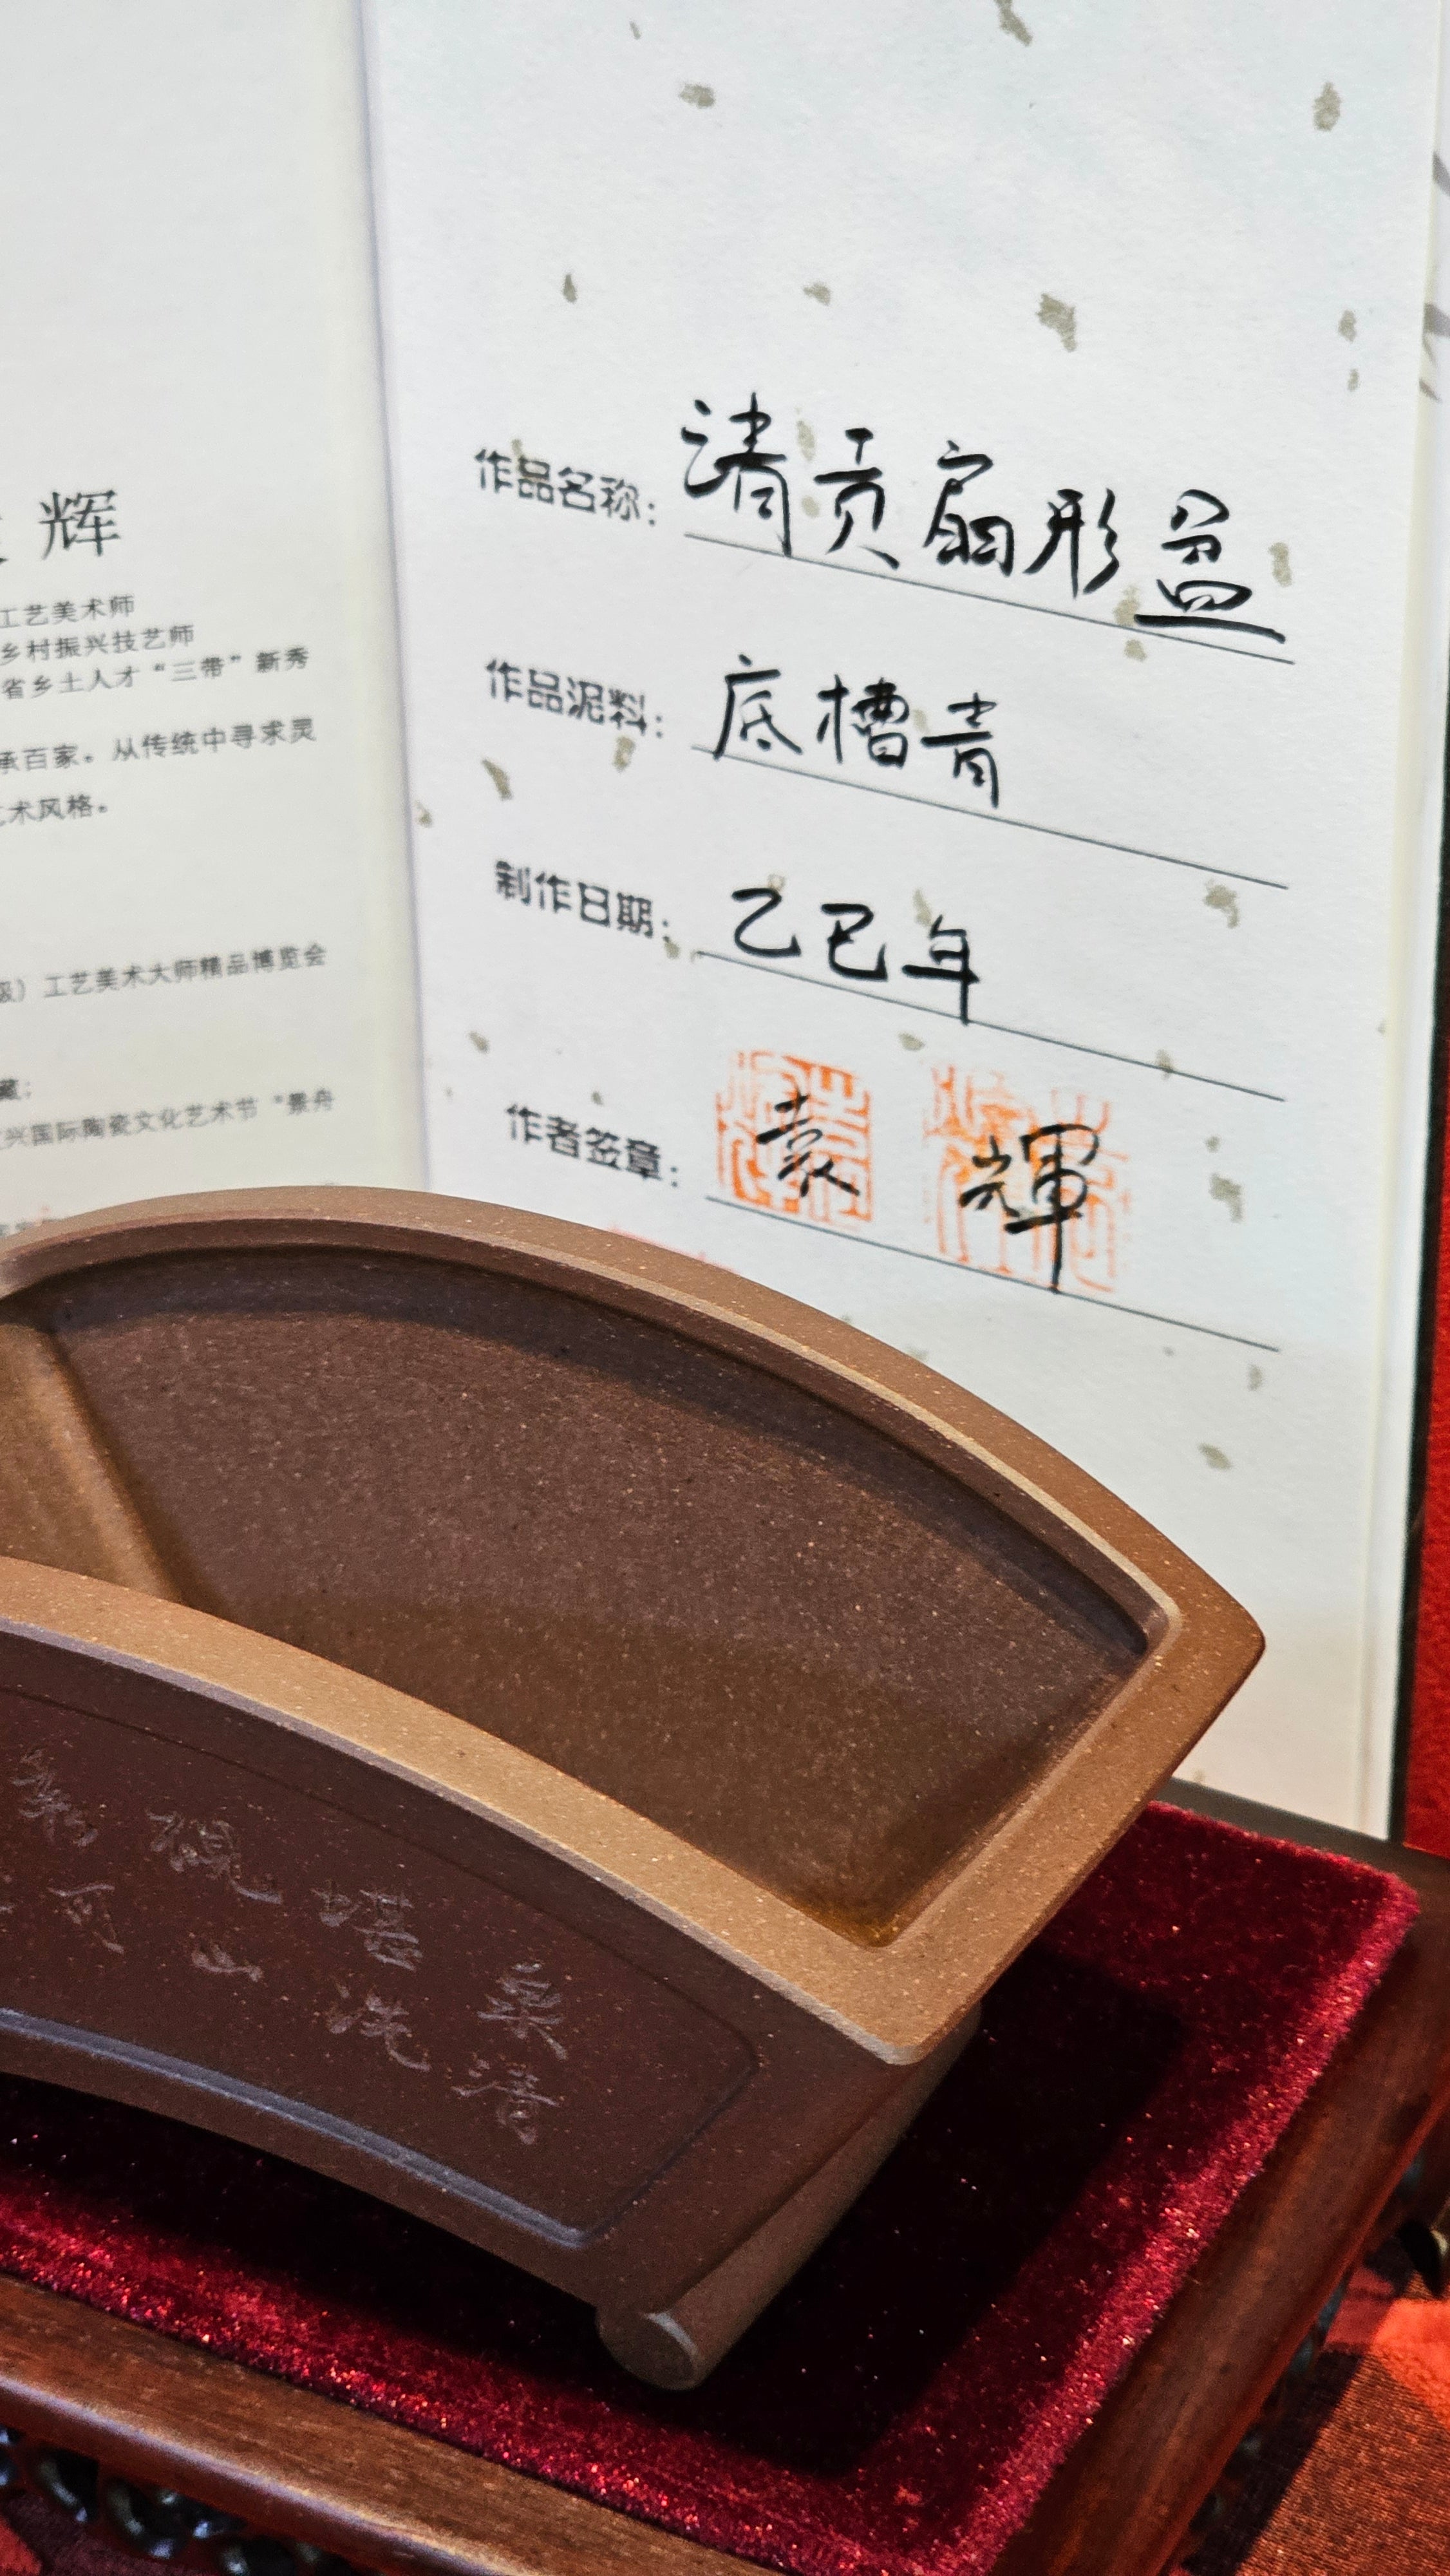 辉
工艺美术师
乡村振兴技艺师
省乡土人才“三带”新秀
承百家。从传统中寻求灵
术风格。
级）工艺美术大师精品博览会
藏；
兴国际陶瓷文化艺术节“景舟
作品名称：清贡扇形盆
作品泥料：底槽青
制作日期：乙巳年
作者签章：袁輝
可
山
洗
清